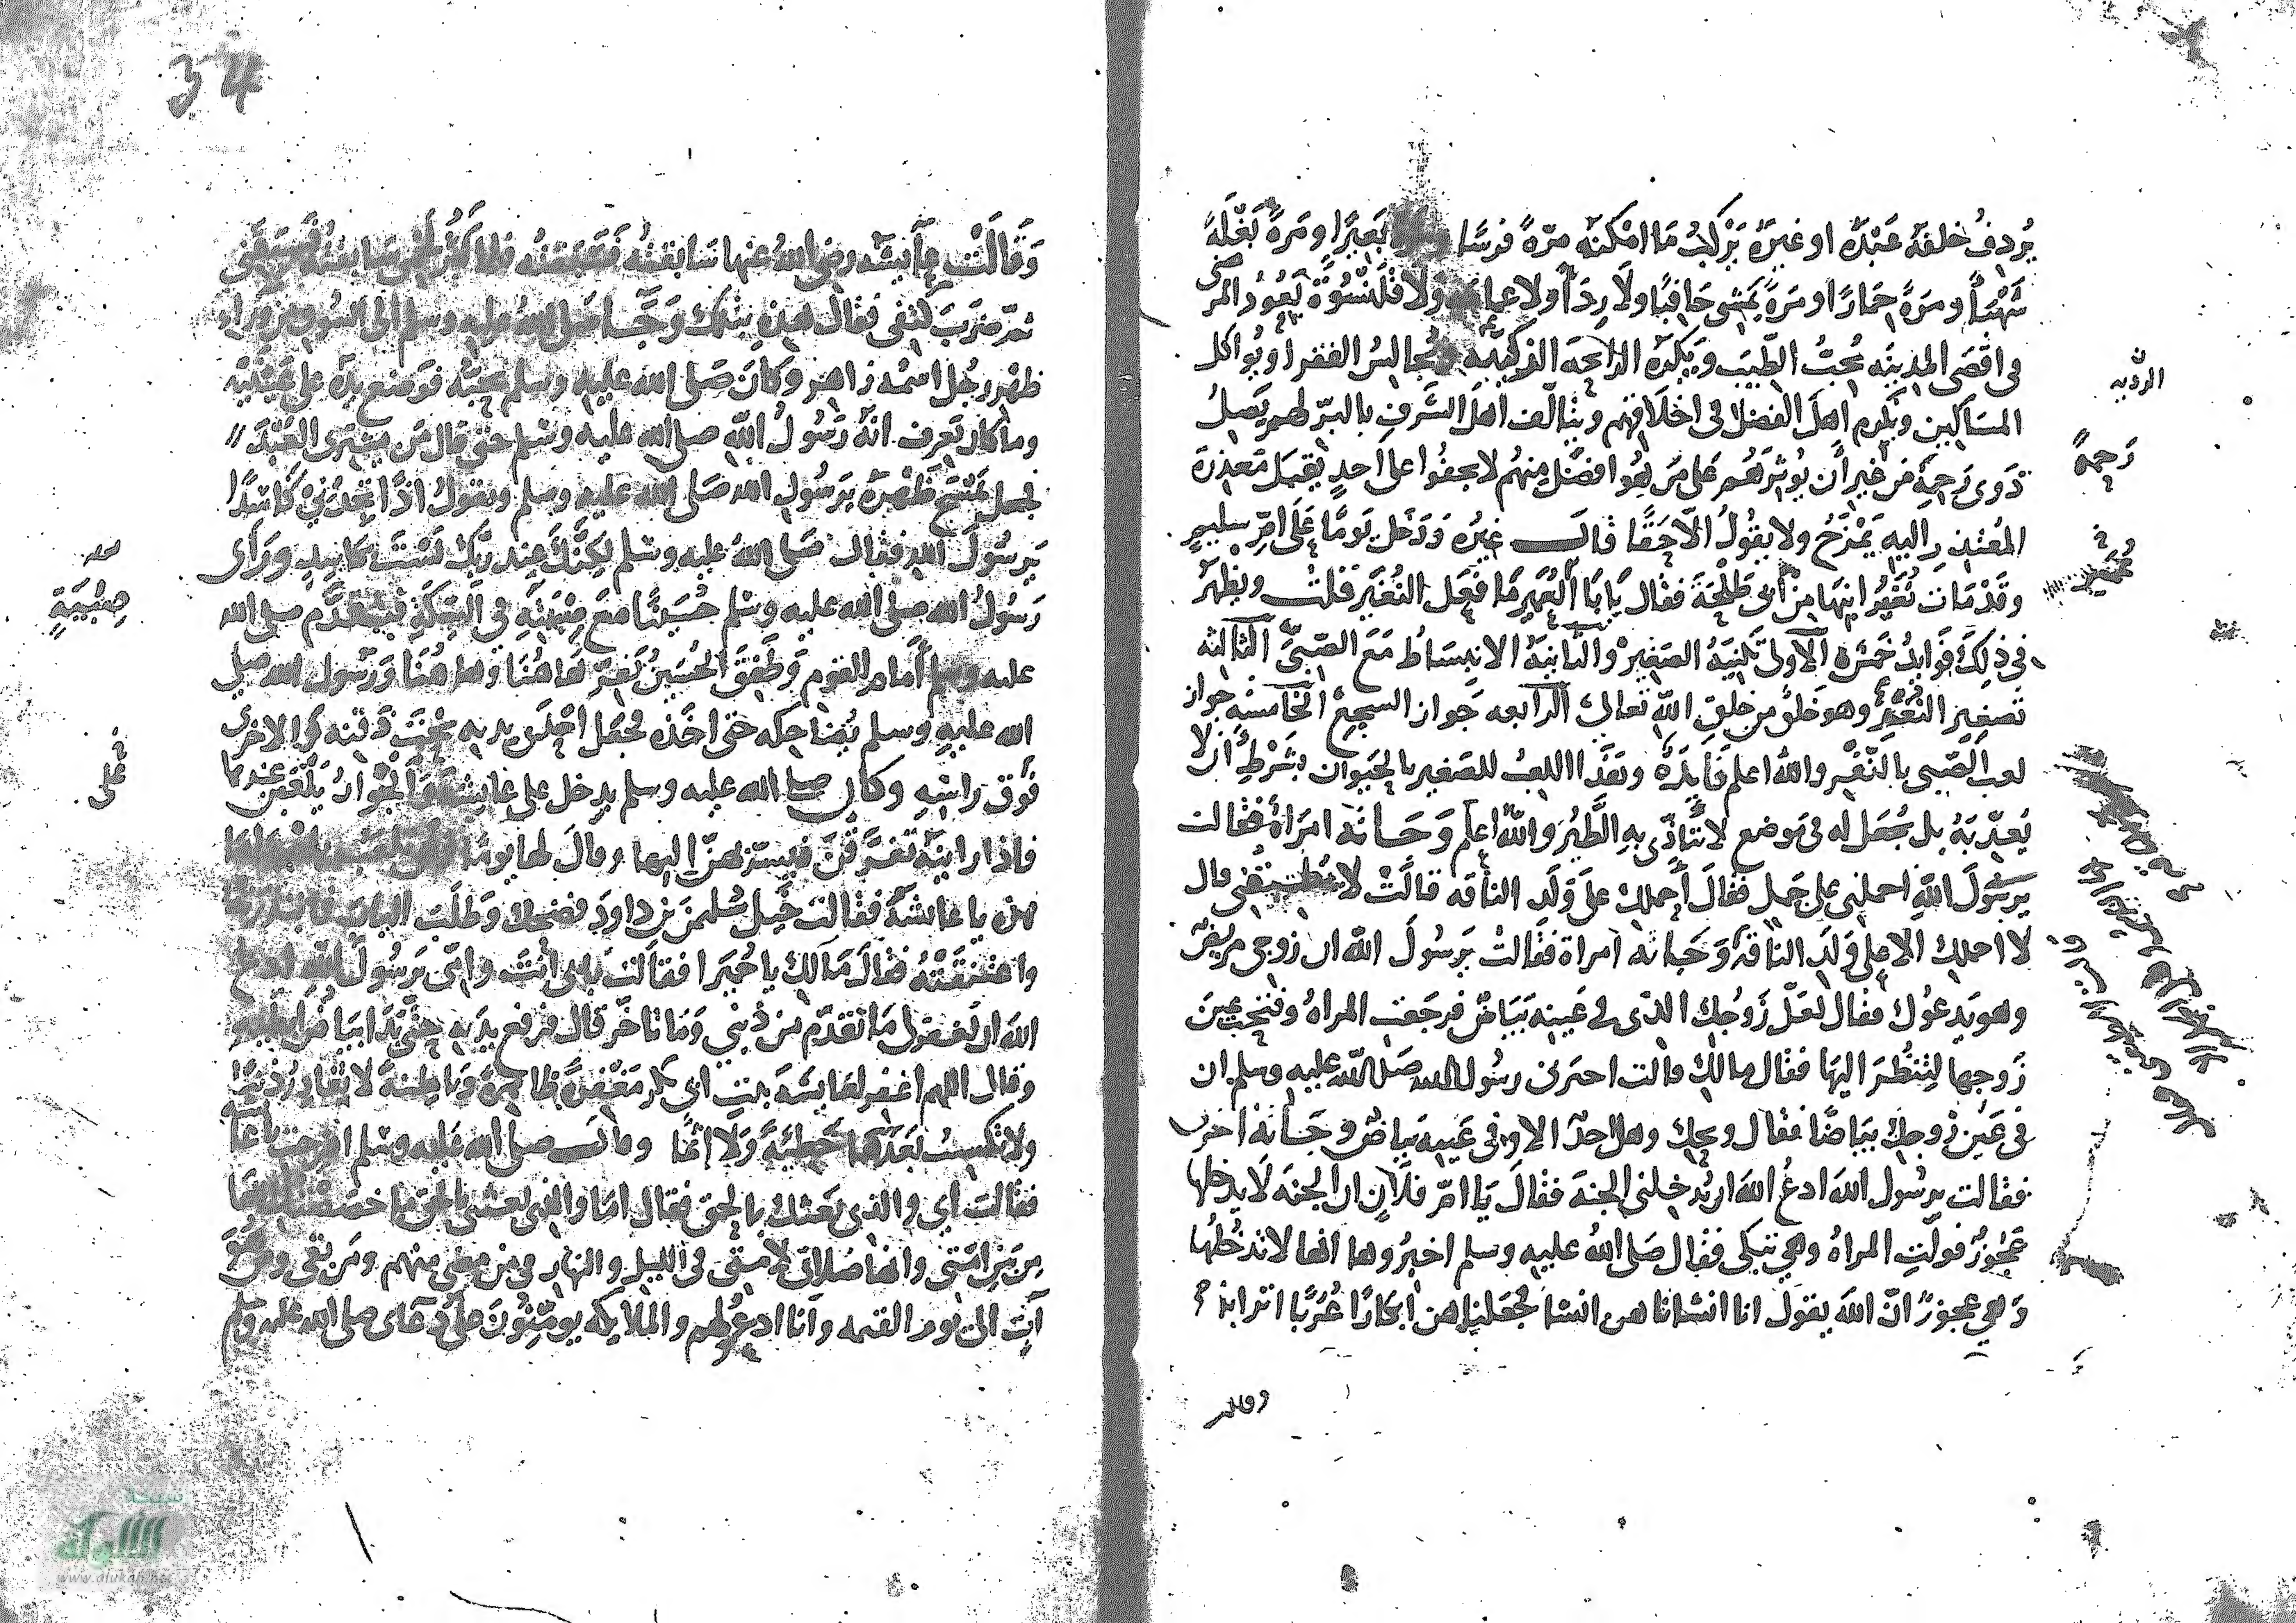 يُردفُ خلفهُ عَبْدَهُ او غيرَهُ يَرْكبُ مَا امْكنَهُ مرّةً فرسًا بَعِيرًا ومَرةً بَغْلَةً
شَهْبَاً ومرّةً حِمَارًا ومَرةً يَمْشِى حَافيًا ولَا رِدَآ ولا عِمامة ولَا قَلَنْسُوَةً يَعُودُ المرْضى
فى اقْصَى المدينَه يُحبُّ الطّيبَ ويَكْرَه الرايحَه ويُجالسُ الفقرا ويُواكل
المسَاكين ويُكرم اهلَ الفضلا فى اخلَاقهم ويتالّف اهلَ الشَرف بالبرّ لهم يَصلُ
ذَوى رَحمِهِ من غير أن يُوثرَهُم عَلى مَن هُو افضَلُ مِنهُم لا يجفُوا على أحدٍ يَقبَل مَعذرةَ
المُعْتذِر اليهِ يَمْزَحُ ولا يقُولُ الّا حَقًا قالـــ غيرُه وَدَخل يَومًا عَلَى امِّ سليمٍ
وقَدْ مَات نُغَيْرُ ابنها مِن أبى طَلْحَةَ فقال يَابَا العُمَيرِ مَا فعَل النُغَير قلت ويظهَرُ
فى ذلِكَ فَوَايدُ خَمْسَة الآولى تَكنيَةُ الصَغير والثانيَهُ الانبسَاطُ مَعَ الصّبىّ الثالثه
تَصغير النُغَير وهو خَلقٌ من خلقِ اللهِ تعالى الرابعه جَواز السجع الخَامسَه جواز
لعب الصّبى بالنّغَر واللهُ اعلم فَايدَة ونَقَذَا اللعبُ للصَغير بالحَيوان بشَرْطِ أن لا
يُعذّبَهُ بل يُجْعَل له فى مَوضع لا يَتَاذّى بهِ الطَيْرُ واللهُ اعلم وَجَـاته امرَاة فقالت
يرسُولَ اللهِ احملنى على جَمل فقَالَ أحملك علَى وَلَدِ الناقه قالَتْ لا يُطيقُنِى قال
لا احملك الا على وَلَدِ الناقَهِ وَجَاته امراة فقالتْ يرَسُولَ الله ان زوجى مريضٌ
وهو يَدعُوك فقال لعَلّ زَوْجُك الذى فى عَينِه بَيَاضٌ فرجَعَت المراةُ وفتحَت عينَ
زَوجها لتَنظُرَ اليهَا فقال مالك قالت اخبرنى رسُول الله صَلى اللهُ عليهِ وسلم ان
فى عَيْنِ زوجك بيَاضًا فقال ويحك وهل احدٌ الا وفى عَينيهِ بياضٌ وَجَـاته اخرى
فقالت يرسُول الله ادعُ الله ان يُدخلنى الجنة فقالَ يَا امّ فلَانٍ ان الجنة لَا يدخلها
عَجُوزٌ فولّتِ المراةُ وهى تبكى فقال صَلى اللهُ عليهِ وسلم اخبرُوها انها لا تَدْخُلها
وَهى عجوزٌ انّ الله يقولَ انا انشانا هن انشا فجعلناهن ابكارًا عُرُبًا اترابا
الرديه
رَحمهِ
عُمَير
وقالت
34
وَقَالَتْ عَآيشَه رضى اللهُ عنها سَابقتُه فَسَبَقتُه فلما كَثُر لَحْمى سَابقتُهُ فَسَبَقَنى
ثمّ ضرَبَ كَتِفى فقال هذِه بتلك وَجَآ صَلى اللهُ عليه وسلم الى السُوقِ من وَرَاء
ظهْر رجُل اسْمُه زاهر وكانَ صَلى الله عليه وسلم يُحبّه فوضع يدَهُ على عَيْنَيْه
وما كان يَعرف انّهُ رَسُولُ اللهِ صلى الله عليه وسَلم حتى قال مَن يشترى العَبْدَ
فجعل يَمْسَحُ ظَهْرَهُ برَسُولِ الله صَلى الله عليه وسلم ويقولُ اذًا تجِدُنِى كَاسِدًا
يَرسُولَ الله فقال صَلى اللهُ عليه وسلم لكِنّكَ عند ربّك لَسْتَ بكاسِدٍ ورَأى
رَسُولُ الله صلى الله عليه وسلم حُسَيْنًا معَ صِبْيَتِهِ فى السِكَةِ فتقَدَّم صلى الله
عليه وسلم أمام القوم وَطَفِقَ الحُسَينُ يَفِرّ هَاهُنَا وهاهُنَا ورَسُول الله صلى
الله عليهِ وسلم يُضَاحِكه حتى اخَذه فجَعَل احْدَى يديهِ تَحْتَ ذَقنه والاخرى
فوْقَ راسِهِ وكان صلى الله عليه وسلم يدخل على عَايشَه والجَوَارُ يَلْعَبْنَ عندها
فاذا راينَهُ تَفَرّقنَ فيسَرّبهنّ اليها وقالَ لها يومًا
هذه يا عايشَة فقالت خَيل سُلَيمن بن داودَ فضحك وَطلَبَ البابَ فابتدرَتْهُ
واعتنَقَتْهُ فقالَ مَالَك يا حُمَيرا فقالت بابى انْتَ وامّى يَرسُولَ اللهِ ادعُ
اللهَ ان يَغفرَ لى مَا تقدّم من ذَنْبِى وَمَا تاخّر قال فرفع يدَيهِ حتّى بَدَا بيَاضُ ابطيهِ
وقال اللهم اغفر لعَايشَهَ بنت ابى بكر مَغْفِرَةً ظاهرَةً وبَاطِنةً لا تغادِرُ ذنبًا
ولا تكسِبُ بَعدهَا خَطيئَةً وَلَا اثْمًا وقالـــ صلى الله عليه وسلم افرحتِ يا عَآيشَة
فقالت أى والذى بَعثك بالحق فقال امَا والذى بعثنى بالحق ما خصَصْتك بهَا
مِن بَينِ امّتى وانها صَلاتى لامتى فى الليل والنهار فى من مضى منهم ومَن بَقى ومن هُوَ
آتٍ الى يوم القيمه وأنا ادعُو لهم والملايكه يومّنُونَ على دعَاى صلى الله عليه وسلم
صِبْيَةٍ